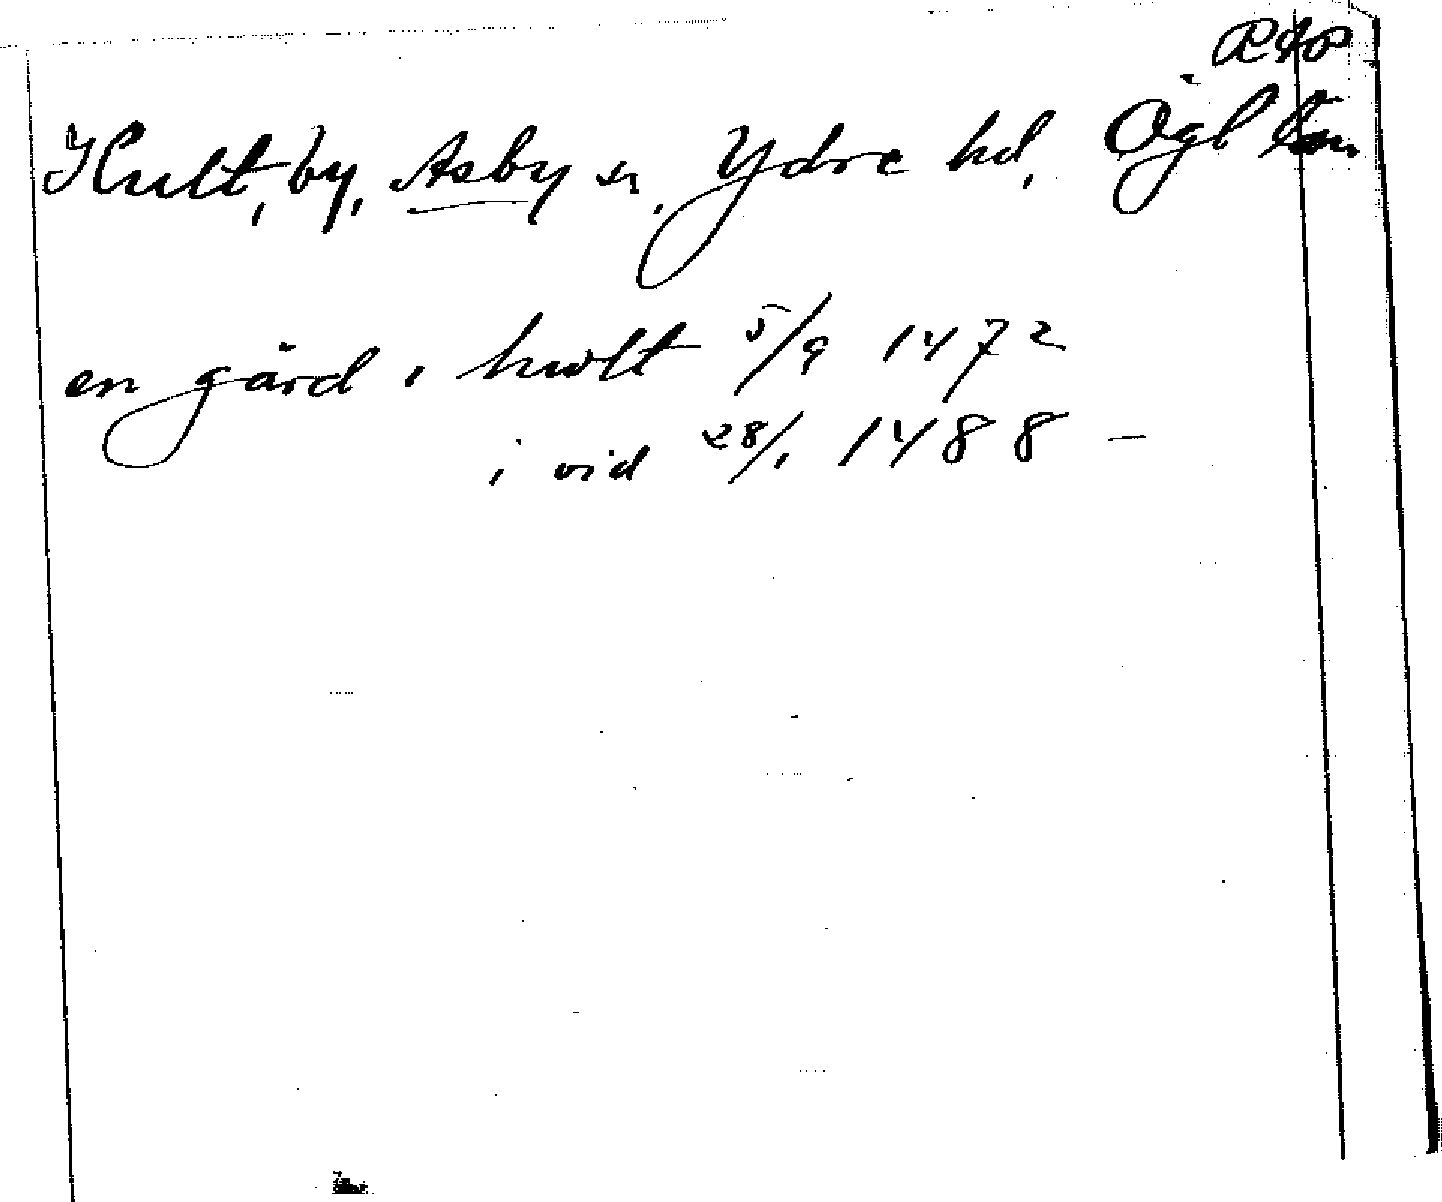 Hult, by, Asby sn, Ydre hd, Ögl län
en gård i hwlt 5/9 1472
i vid 28/1 1488 —